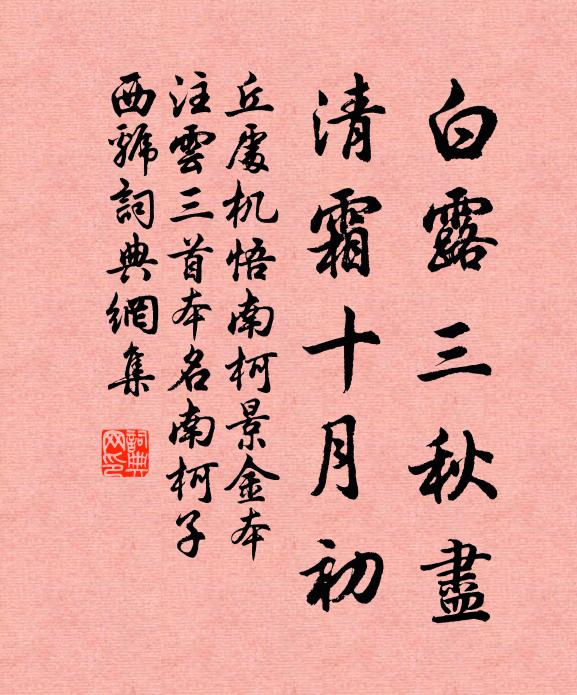 白露三秋盡
清霜十月初
丘處机悟南柯景金本
注雲三首本名南柯子
西號詞典網集
詞典網印